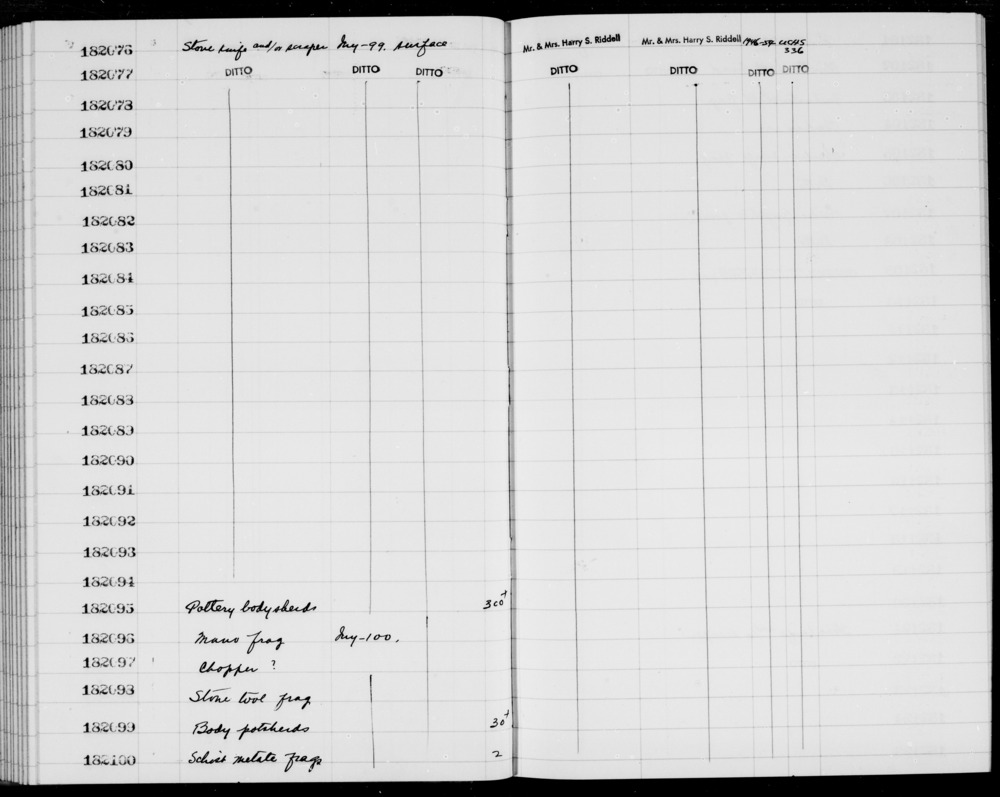 182076 Stone knife and/or scraper Iny-99. surface Mr. & Mrs. Harry S. Riddell Mr. & Mrs. Harry S. Riddell 1946-54
336
182077 DITTO DITTO DITTO DITTO DITTO DITTO DITTO
182078
182079
182080
182081
182082
182083
182084
182085
182086
182087
182088
182089
182090
182091
182092
182093
182094
182095 Pottery body sherds 300+
182096 Mano frag Iny-100.
182097 Chopper ?
182098 Stone tool frag
182099 Body potsherds 30+
182100 Schist metate frags 2